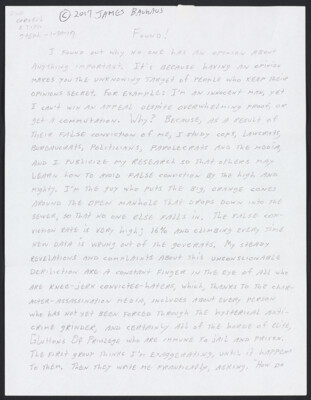 © 2017 JAMES BAUHAUS
FOUND!
I FOUND OUT WHY NO ONE HAS AN OPINION ABOUT
ANYTHING IMPORTANT. IT'S BECAUSE HAVING AN OPINION
MAKES YOU THE UNKNOWING TARGET OF PEOPLE WHO KEEP THEIR
OPINIONS SECRET. FOR EXAMPLE: I'M AN INNOCENT MAN, YET
I CAN'T WIN AN APPEAL DESPITE OVERWHELMING PROOF, OR
GET A COMMUTATION. WHY? BECAUSE, AS A RESULT OF
THEIR FALSE CONVICTION OF ME, I STUDY COPS, LAWYERS,
BUREAUCRATS, POLITICIANS, PAROLECRATS AND THE MEDIA,
AND I PUBLICIZE MY RESEARCH SO THAT OTHERS MAY
LEARN HOW TO AVOID FALSE CONVICTION BY THE HIGH AND
MIGHTY. I'M THE GUY WHO PUTS THE BIG, ORANGE CONES
AROUND THE OPEN MANHOLE THAT DROPS DOWN INTO THE
SEWER, SO THAT NO ONE ELSE FALLS IN. THE FALSE CON-
VICTION RATE IS VERY HIGH; 16% AND CLIMBING EVERY TIME
NEW DATA IS WRUNG OUT OF THE GOVCRATS. MY STEADY
REVELATIONS AND COMPLAINTS ABOUT THIS UNQUESTIONABLE
DEFINITION ARE A CONSTANT FINGER IN THE EYE OF ALL WHO
ARE KNEE-JERK CONVICTEE-HATERS, WHICH, THANKS TO THE CHAR-
ACTER-ASSASSINATION MEDIA, INCLUDES ABOUT EVERY PERSON
WHO HAS NOT YET BEEN FORCED THROUGH THE HYSTERICAL ANTI-
CRIME GRINDER, AND CERTAINLY ALL OF THE HORDE OF ELITE,
GLUTTONS OF PRIVILEGE WHO ARE IMMUNE TO JAIL AND PRISON.
THE FIRST GROUP THINKS I'M EXAGGERATING, UNTIL IT HAPPENS
TO THEM. THEN THEY WRITE ME FRANTICALLY, ASKING, "HOW DO